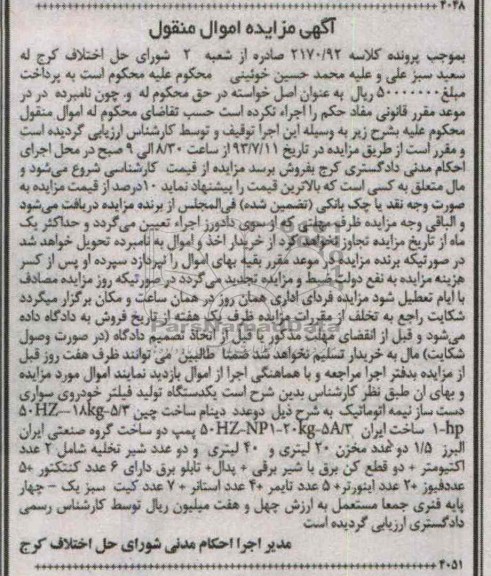 ۴۰۴۸
آگهی مزایده اموال منقول
بموجب پرونده کلاسه ۲۱۷۰/۹۲ صادره از شعبه ۲ شورای حل اختلاف کرج له
سعید سبز علی و علیه محمد حسین خوئینی محکوم علیه محکوم است به پرداخت
مبلغ ۵۰۰۰۰۰۰۰ ریال به عنوان اصل خواسته در حق محکوم له و. چون نامبرده در در
موعد مقرر قانونی مفاد حکم را اجراء نکرده است حسب تقاضای محکوم له اموال منقول
محکوم علیه بشرح زیر به وسیله این اجرا توقیف و توسط کارشناس ارزیابی گردیده است
و مقرر است از طریق مزایده در تاریخ ۹۳/۷/۱۱ از ساعت ۸/۳۰ الی ۹ صبح در محل اجرای
احکام مدنی دادگستری کرج بفروش برسد مزایده از قیمت کارشناسی شروع می‌شود و
مال متعلق به کسی است که بالاترین قیمت را پیشنهاد نماید ۱۰درصد از قیمت مزایده به
صورت وجه نقد یا چک بانکی (تضمین شده) فی‌المجلس از برنده مزایده دریافت می‌شود
و الباقی وجه مزایده ظرف مهلتی که از سوی دادورز اجراء تعیین می‌گردد و حداکثر یک
ماه از تاریخ مزایده تجاوز نخواهد کرد از خریدار اخذ و اموال به نامبرده تحویل خواهد شد
در صورتیکه برنده مزایده در موعد مقرر بقیه بهای اموال را نپردازد سپرده او پس از کسر
هزینه مزایده به نفع دولت ضبط و مزایده تجدید می‌گردد در صورتیکه روز مزایده مصادف
با ایام تعطیل شود مزایده فردای اداری همان روز در همان ساعت و مکان برگزار میگردد
شکایت راجع به تخلف از مقررات مزایده ظرف یک هفته از تاریخ فروش به دادگاه داده
می‌شود و قبل از انقضای مهلت مذکور یا قبل از اتخاذ تصمیم دادگاه (در صورت وصول
شکایت) مال به خریدار تسلیم نخواهد شد ضمنا طالبین می توانند ظرف هفت روز قبل
از مزایده بدفتر اجرا مراجعه و با هماهنگی اجرا از اموال بازدید نمایند اموال مورد مزایده
و بهای ان طبق نظر کارشناس بدین شرح است یکدستگاه تولید فیلتر خودروی سواری
دست ساز نیمه اتوماتیک به شرح ذیل دوعدد دینام ساخت چین ۵۰HZ-–۱۸kg-۵/۳
۱-hp ساخت ایران ۵۰HZ-NP۱-۲۰kg-۵A/۳ پمپ دو ساخت گروه صنعتی ایران
البرز ۱/۵ دو عدد مخزن ۲۰ لیتری و ۴۰ لیتری و دو عدد شیر تخلیه شامل ۲ عدد
اکتیومتر + دو قطع کن برق با شیر برقی + پدال+ تابلو برق دارای ۶ عدد کنتکتور +۵
عددفیوز +۲ عدد اینورتر+ ۵ عدد تایمر +۴ عدد استاتر + ۷ عدد کیت سبز یک - چهار
پایه فنری جمعا مستعمل به ارزش چهل و هفت میلیون ریال توسط کارشناس رسمی
دادگستری ارزیابی گردیده است
مدیر اجرا احکام مدنی شورای حل اختلاف کرج
۴۰۵۱
ParsNamadData